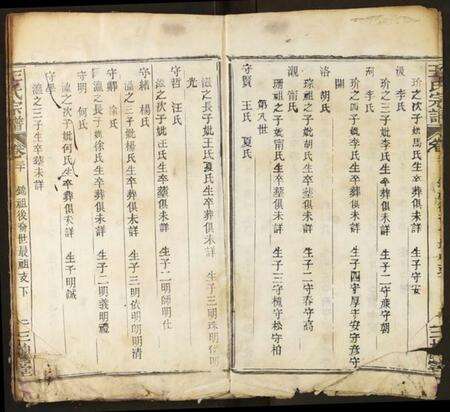 玠之次子妣馬氏生卒葬俱未詳 生子守安
後 李氏
玠之三子妣李氏生卒葬俱未詳 生子二守慶守朝
李氏
玠之四子妣李氏生卒葬俱未詳 生子四守厚守安守彥守
開
洛 胡氏
琮祖之次子妣胡氏生卒葬俱未詳 生子二守春守高
甯氏
之三子妣甯氏生卒葬俱未詳 生子三守槐守松守柏
第八世
守賢 王氏 夏氏
之長子妣王氏夏氏生卒葬俱未詳 生子三明珠明
光
守哲 汪氏
之次子妣汪氏生卒葬俱未詳 生子二明師明仕
守緒 楊氏
之三子妣楊氏生卒葬俱未詳 生子三明依明朗明清
守卿 徐氏
之長子妣徐氏生卒葬俱未詳 生子二明義明禮
守明 何氏
之次子妣何氏生卒葬俱未詳 生子明誠
守學
之三子生卒葬未詳
王氏宗譜 卷二十 祖後裔世最祖支下